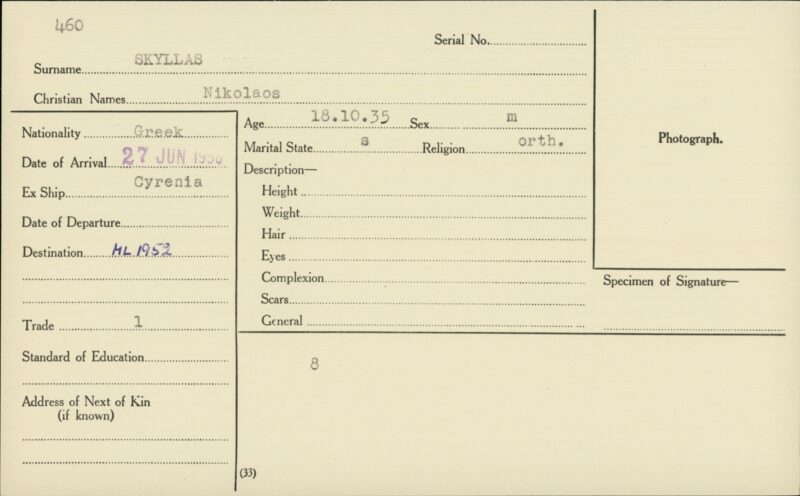 460
Serial No.
Surname SKYLLAS
Christian Names Nikolaos
Nationality Greek
Date of Arrival 27 JUN
Ex Ship Cyrenia
Date of Departure
Destination ML 1952
Trade 1
Standard of Education
Address of Next of Kin
(if known)
Age 18.10.35 Sex m
Marital State s Religion orth.
Description—
Height
Weight
Hair
Eyes
Complexion
Scars
General
8
(33)
Photograph.
Specimen of Signature—